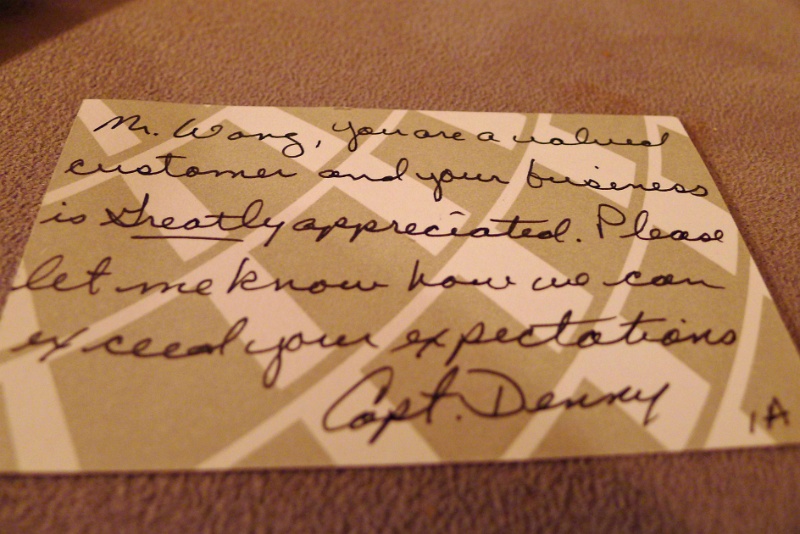 Mr. Wang, you are a valued
customer and your business
is Greatly appreciated. Please
let me know how we can
exceed your expectations
Capt. Denny
1A